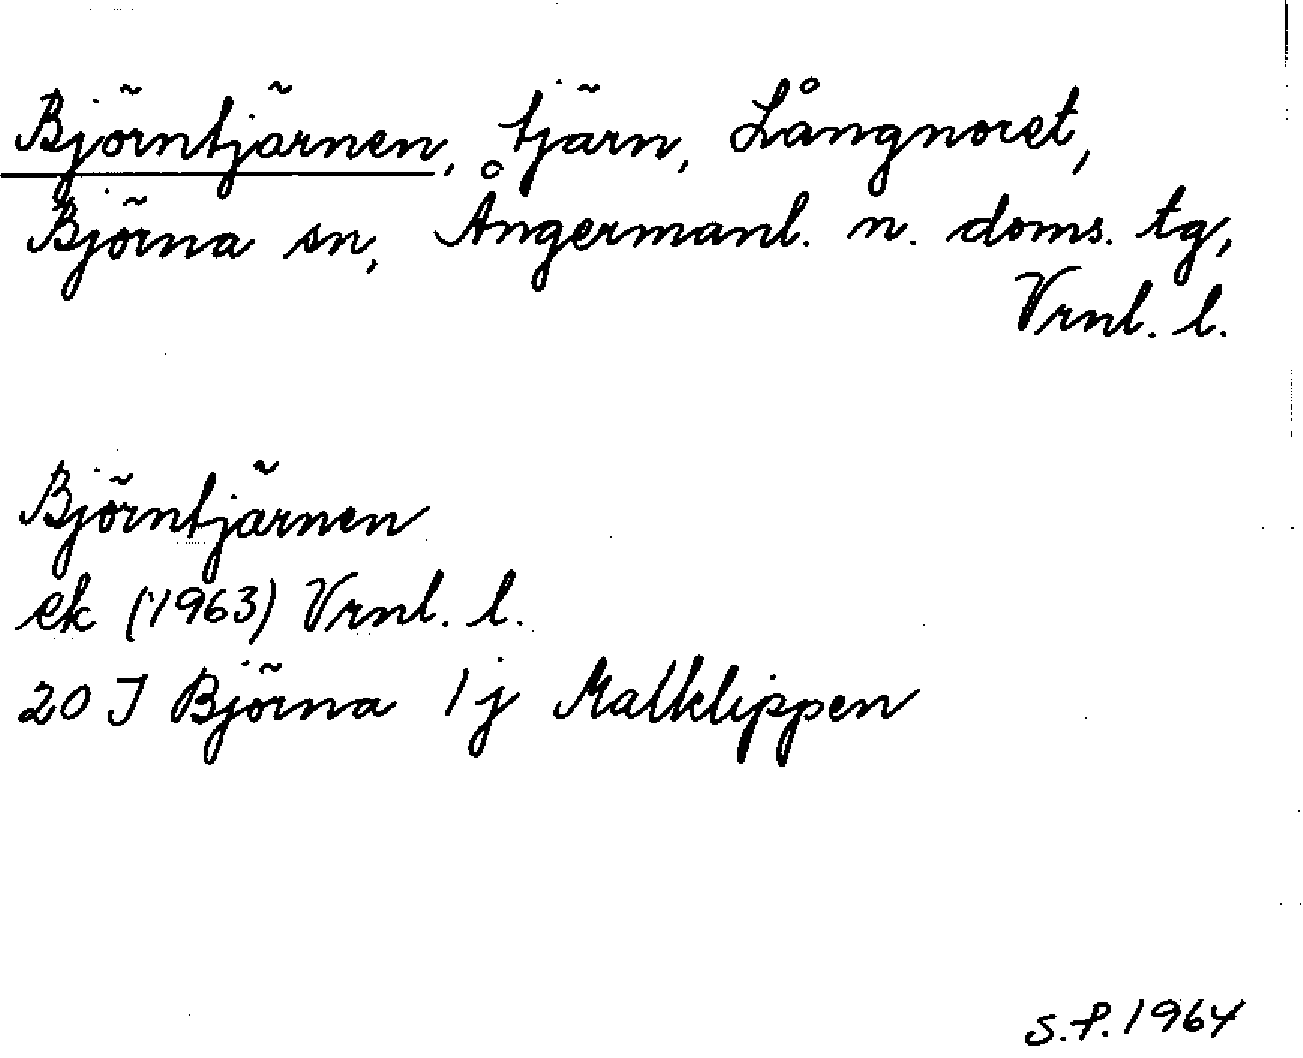 Björntjärnen, tjärn, Långnoret,
Björna sn, Ångermanl. n. doms. tg,
Vrnl. l.
Björntjärnen
ek (1963) Vrnl. l.
20 J Björna 1j Malklippen
S.P. 1964